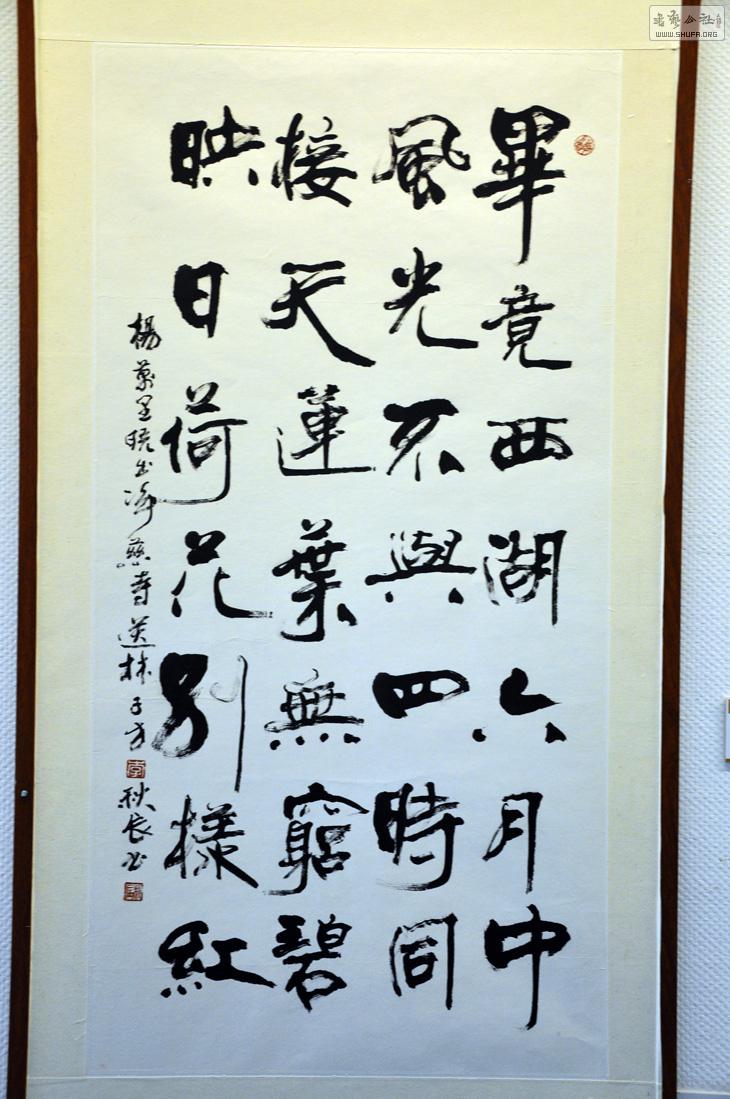 畢竟西湖六月中
風光不與四時同
接天蓮葉無窮碧
映日荷花別樣紅
楊萬里曉出淨慈寺送林子方
秋長书
書藝公社
WWW.SHUFA.ORG